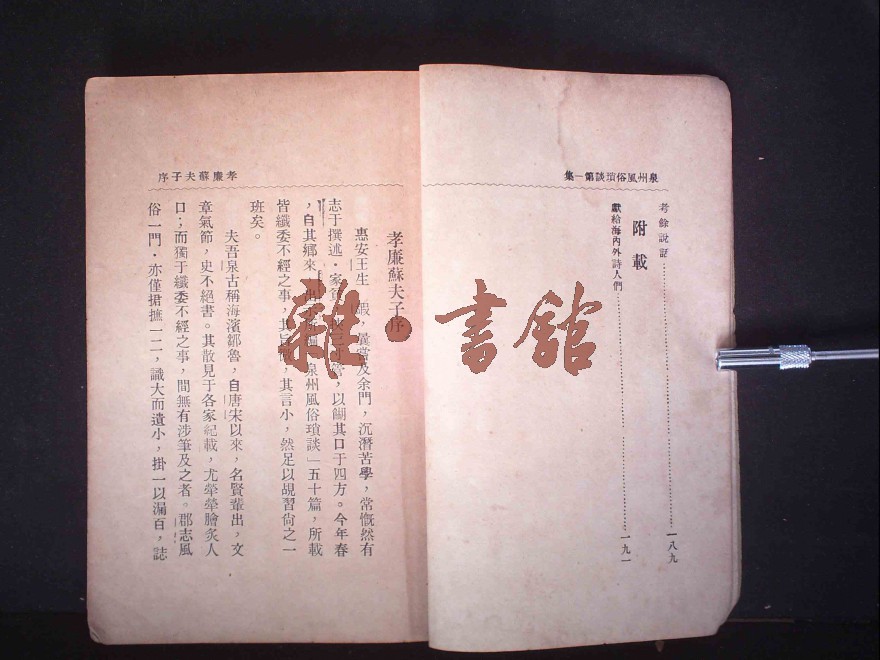 泉州風俗瑣談第一集
考餘說証……一八九
附載
獻給海內外詩人們……一九一
孝廉蘇夫子序
孝廉蘇夫子序
惠安王生 嘏,曩嘗及余門,沉潛苦學,常慨然有
志于撰述・家 以餬其口于四方。今年春
,自其鄉來, 泉州風俗瑣談」五十篇,所載
皆纖委不經之事,其 其言小,然足以覘習尙之一
班矣。
夫吾泉古稱海濱鄒魯,自唐宋以來,名賢輩出,文
章氣節,史不絕書。其散見于各家紀載,尤犖犖膾炙人
口;而獨于纖委不經之事,間無有涉筆及之者。郡志風
俗一門・亦僅捃摭一二,識大而遺小,掛一以漏百,誌
雜・書館